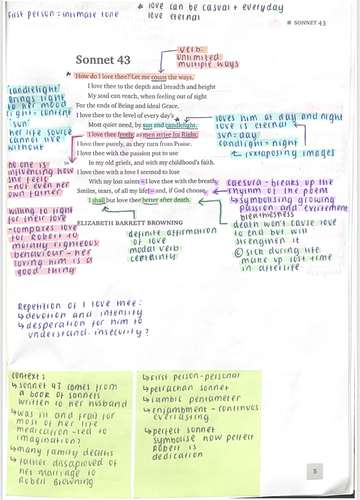 First person = intimate tone
* love can be casual + everyday
love eternal
SONNET 43
Sonnet 43
verb-
unlimited
multiple ways
How do I love thee? Let me count the ways.
I love thee to the depth and breadth and height
My soul can reach, when feeling out of sight
For the ends of Being and ideal Grace.
I love thee to the level of every day's
Most quiet need, by sun and candlelight.
I love thee freely, as men strive for Right;
I love thee purely, as they turn from Praise.
I love thee with the passion put to use
In my old griefs, and with my childhood's faith.
I love thee with a love I seemed to lose
With my lost saints – I love thee with the breath,
Smiles, tears, of all my life! – and, if God choose,
I shall but love thee better after death.
ELIZABETH BARRETT BROWNING
'candlelight'
brings light
to her mood
light = content
'sun'
her life source
cannot live
without
no one is
influencing how
she feels
- not even her
own father
willing to fight
for their love
- compares love
for Robert to
morally righteous
behaviour - her
loving him is a
good thing
loves him at day and night
love is eternal
sun = day
candlelight = night
juxtaposing images
caesura - breaks up the
rhythm of the poem
↳ symbolising growing
passion and excitement
breathlessness
death won't cause love
to end but will
strengthen it
© sick during life
make up lost time
in afterlife
definite affirmation
of love
modal verb
certainty
Repetition of I love thee:
↳ devotion and intensity
↳ desperation for him to
understand. insecurity?
context:
↳ sonnet 43 comes from
a book of sonnets
written to her husband
↳ was ill and frail for
most of her life
medication - led to
imagination?
↳ many family deaths
↳ father disapproved of
her marriage to
Robert Browning
↳ first person - personal
↳ petrachan sonnet
↳ iambic pentameter
↳ enjambment - continues
everlasting
↳ perfect sonnet
symbolise how perfect
Robert is
dedication
5